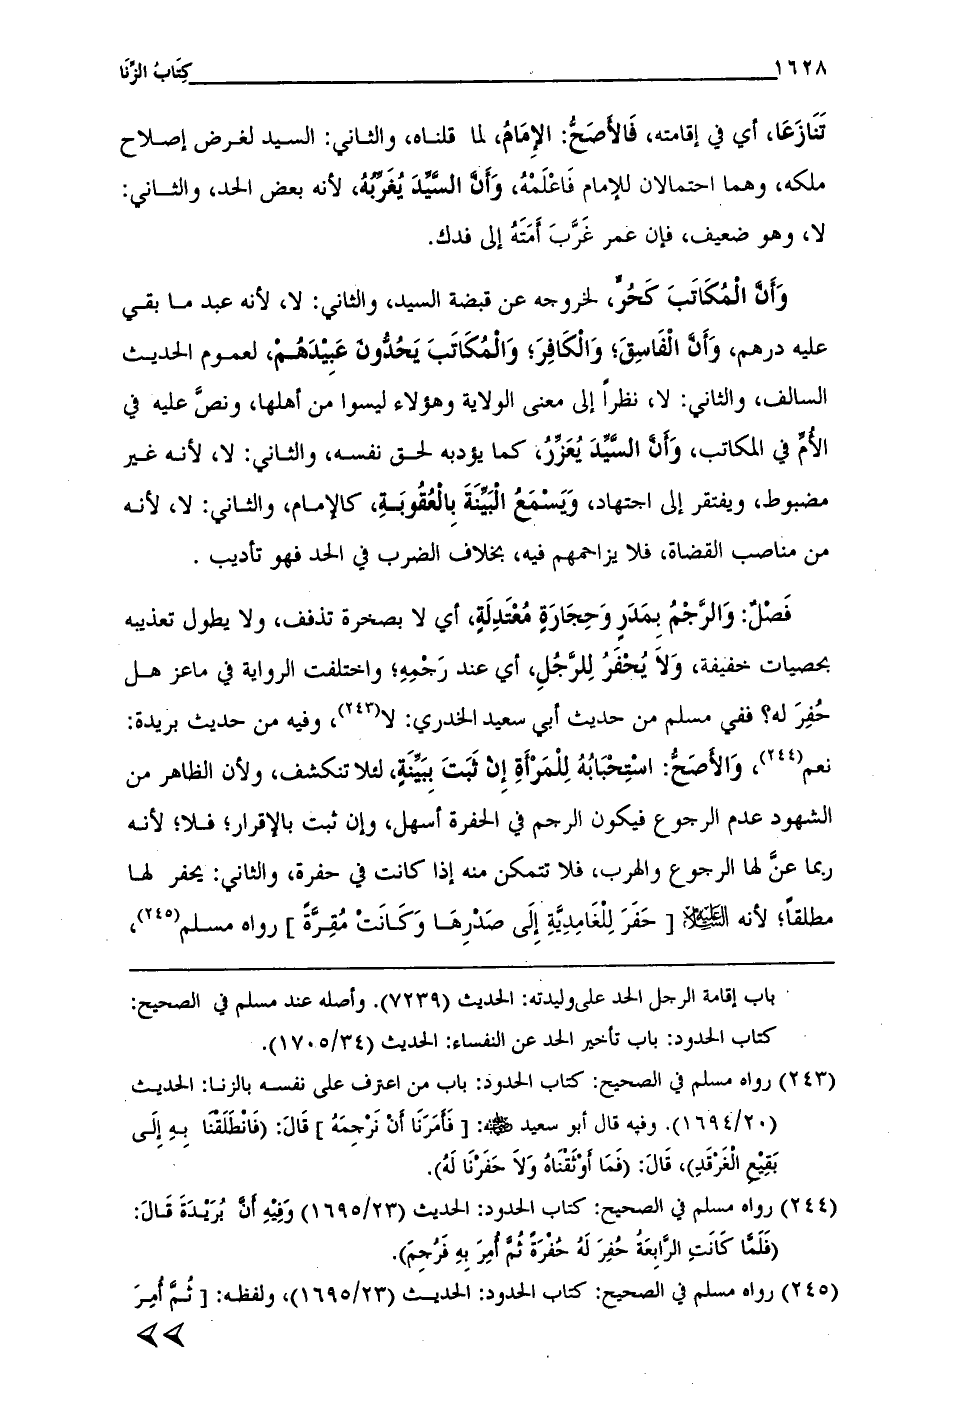 ١٦٢٨ كِتَابُ الزِّنَا
تَنَازَعَا، أي في إقامته، فَالأَصَحُّ: الإِمَامُ، لما قلناه، والثاني: السيد لغرض إصلاح
ملكه، وهما احتمالان للإمام فَاعْلَمْهُ، وَأَنَّ السَّيِّدَ يُغَرِّبُهُ، لأنه بعض الحد، والثاني:
لا، وهو ضعيف، فإن عمر غَرَّبَ أَمَتَهُ إلى فدك.
وَأَنَّ الْمُكَاتَبَ كَحُرٍّ، لخروجه عن قبضة السيد، والثاني: لا، لأنه عبد ما بقي
عليه درهم، وَأَنَّ الْفَاسِقَ؛ وَالْكَافِرَ؛ وَالْمُكَاتَبَ يَحُدُّونَ عَبِيْدَهُمْ، لعموم الحديث
السالف، والثاني: لا، نظراً إلى معنى الولاية وهؤلاء ليسوا من أهلها، ونصَّ عليه في
الأُمِّ في المكاتب، وَأَنَّ السَّيِّدَ يُعَزِّرُ، كما يؤدبه لحق نفسه، والثاني: لا، لأنه غير
مضبوط، ويفتقر إلى اجتهاد، وَيَسْمَعُ الْبَيِّنَةَ بِالْعُقُوبَةِ، كالإمام، والثاني: لا، لأنه
من مناصب القضاة، فلا يزاحمهم فيه، بخلاف الضرب في الحد فهو تأديب .
فَصْلٌ: وَالرَّجْمُ بِمَدَرٍ وَحِجَارَةٍ مُعْتَدِلَةٍ، أي لا بصخرة تذفف، ولا يطول تعذيبه
بحصيات خفيفة، وَلاَ يُحْفَرُ لِلرَّجُلِ، أي عند رَجْمِهِ؛ واختلفت الرواية في ماعز هل
حُفِرَ له؟ ففي مسلم من حديث أبي سعيد الخدري: لا(٢٤٣)، وفيه من حديث بريدة:
نعم(٢٤٤)، وَالأَصَحُّ: اسْتِحْبَابُهُ لِلْمَرْأَةِ إِنْ ثَبَتَ بِبَيِّنَةٍ، لئلا تنكشف، ولأن الظاهر من
الشهود عدم الرجوع فيكون الرجم في الحفرة أسهل، وإن ثبت بالإقرار؛ فلا؛ لأنه
ربما عنَّ لها الرجوع والهرب، فلا تتمكن منه إذا كانت في حفرة، والثاني: يحفر لها
مطلقاً؛ لأنه العَلَيْهِ السَّلَام [ حَفَرَ لِلْغَامِدِيَّةِ إِلَى صَدْرِهَا وَكَانَتْ مُقِرَّةً ] رواه مسلم(٢٤٥)،
باب إقامة الرجل الحد على وليدته: الحديث (٧٢٣٩). وأصله عند مسلم في الصحيح:
كتاب الحدود: باب تأخير الحد عن النفساء: الحديث (١٧٠٥/٣٤).
(٢٤٣) رواه مسلم في الصحيح: كتاب الحدود: باب من اعترف على نفسه بالزنا: الحديث
(١٦٩٤/٢٠). وفيه قال أبو سعيد ﷺ: [ فَأَمَرَنَا أَنْ نَرْجِمَهُ ] قَالَ: (فَانْطَلَقْنَا بِهِ إِلَى
بَقِيْعِ الْغَرْقَدِ)، قَالَ: (فَمَا أَوْثَقْنَاهُ وَلاَ حَفَرْنَا لَهُ).
(٢٤٤) رواه مسلم في الصحيح: كتاب الحدود: الحديث (١٦٩٥/٢٣) وَفِيْهِ أَنَّ بُرَيْدَةَ قَالَ:
(فَلَمَّا كَانَتِ الرَّابِعَةُ حُفِرَ لَهُ حُفْرَةً ثُمَّ أُمِرَ بِهِ فَرُجِمَ).
(٢٤٥) رواه مسلم في الصحيح: كتاب الحدود: الحديث (١٦٩٥/٢٣)، ولفظه: [ ثُمَّ أُمِرَ